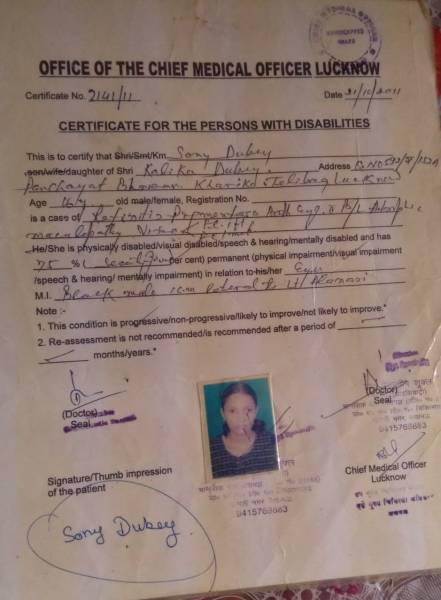 HANDICAPPED
OFFICE OF THE CHIEF MEDICAL OFFICER LUCKNOW
Certificate No. 2141/11 Date 21/10/2011
CERTIFICATE FOR THE PERSONS WITH DISABILITIES
This is to certify that Shri/Smt/Km. Sony Dubey
son/wife/daughter of Shri Kalika Dubey. Address
Panchayat Bhawan Kharika Telibag Lucknow
Age 16 y old male/female, Registration No.
is a case of Retinitis
He/She is physically disabled/visual disabled/speech & hearing/mentally disabled and has
75 % ( per cent) permanent (physical impairment/visual impairment
/speech & hearing/ mentally impairment) in relation to his/her Eyes
M.I. Black mole
Note :-
1. This condition is progressive/non-progressive/likely to improve/not likely to improve.*
2. Re-assessment is not recommended/is recommended after a period of
months/years.*
(Doctor)
Seal
(Doctor)
Seal
9415768683
Chief Medical Officer
Lucknow
Signature/Thumb impression
of the patient
9415768683
Sony Dubey